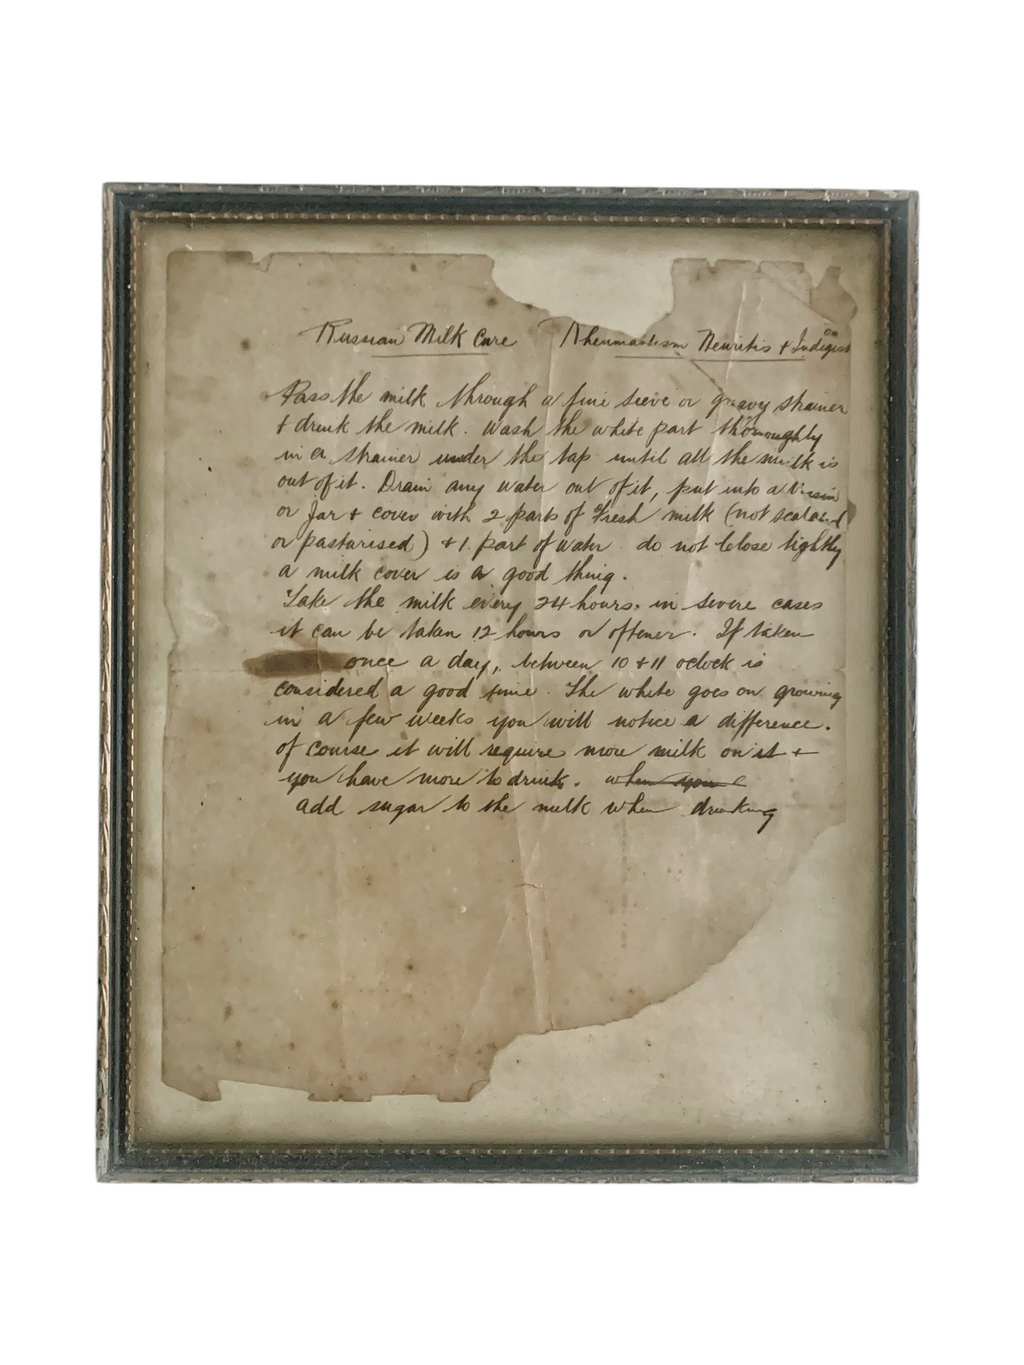 Russian Milk Cure Rheumatism Neuritis + Indigestion
Pass the milk through a fine sieve or gravy strainer
+ drink the milk. Wash the white part thoroughly
in a strainer under the tap until all the milk is
out of it. Drain any water out of it, put into a
or Jar + cover with 2 parts of Fresh milk (not scalded
or pastarised) + 1 part of water. do not close tightly
a milk cover is a good thing.
Take the milk every 24 hours. in severe cases
it can be taken 12 hours or oftener. If taken
once a day, between 10 + 11 oclock is
considered a good time. The white goes on growing
in a few weeks you will notice a difference.
of course it will require more milk on it +
you have more to drink. when you
add sugar to the milk when drinking